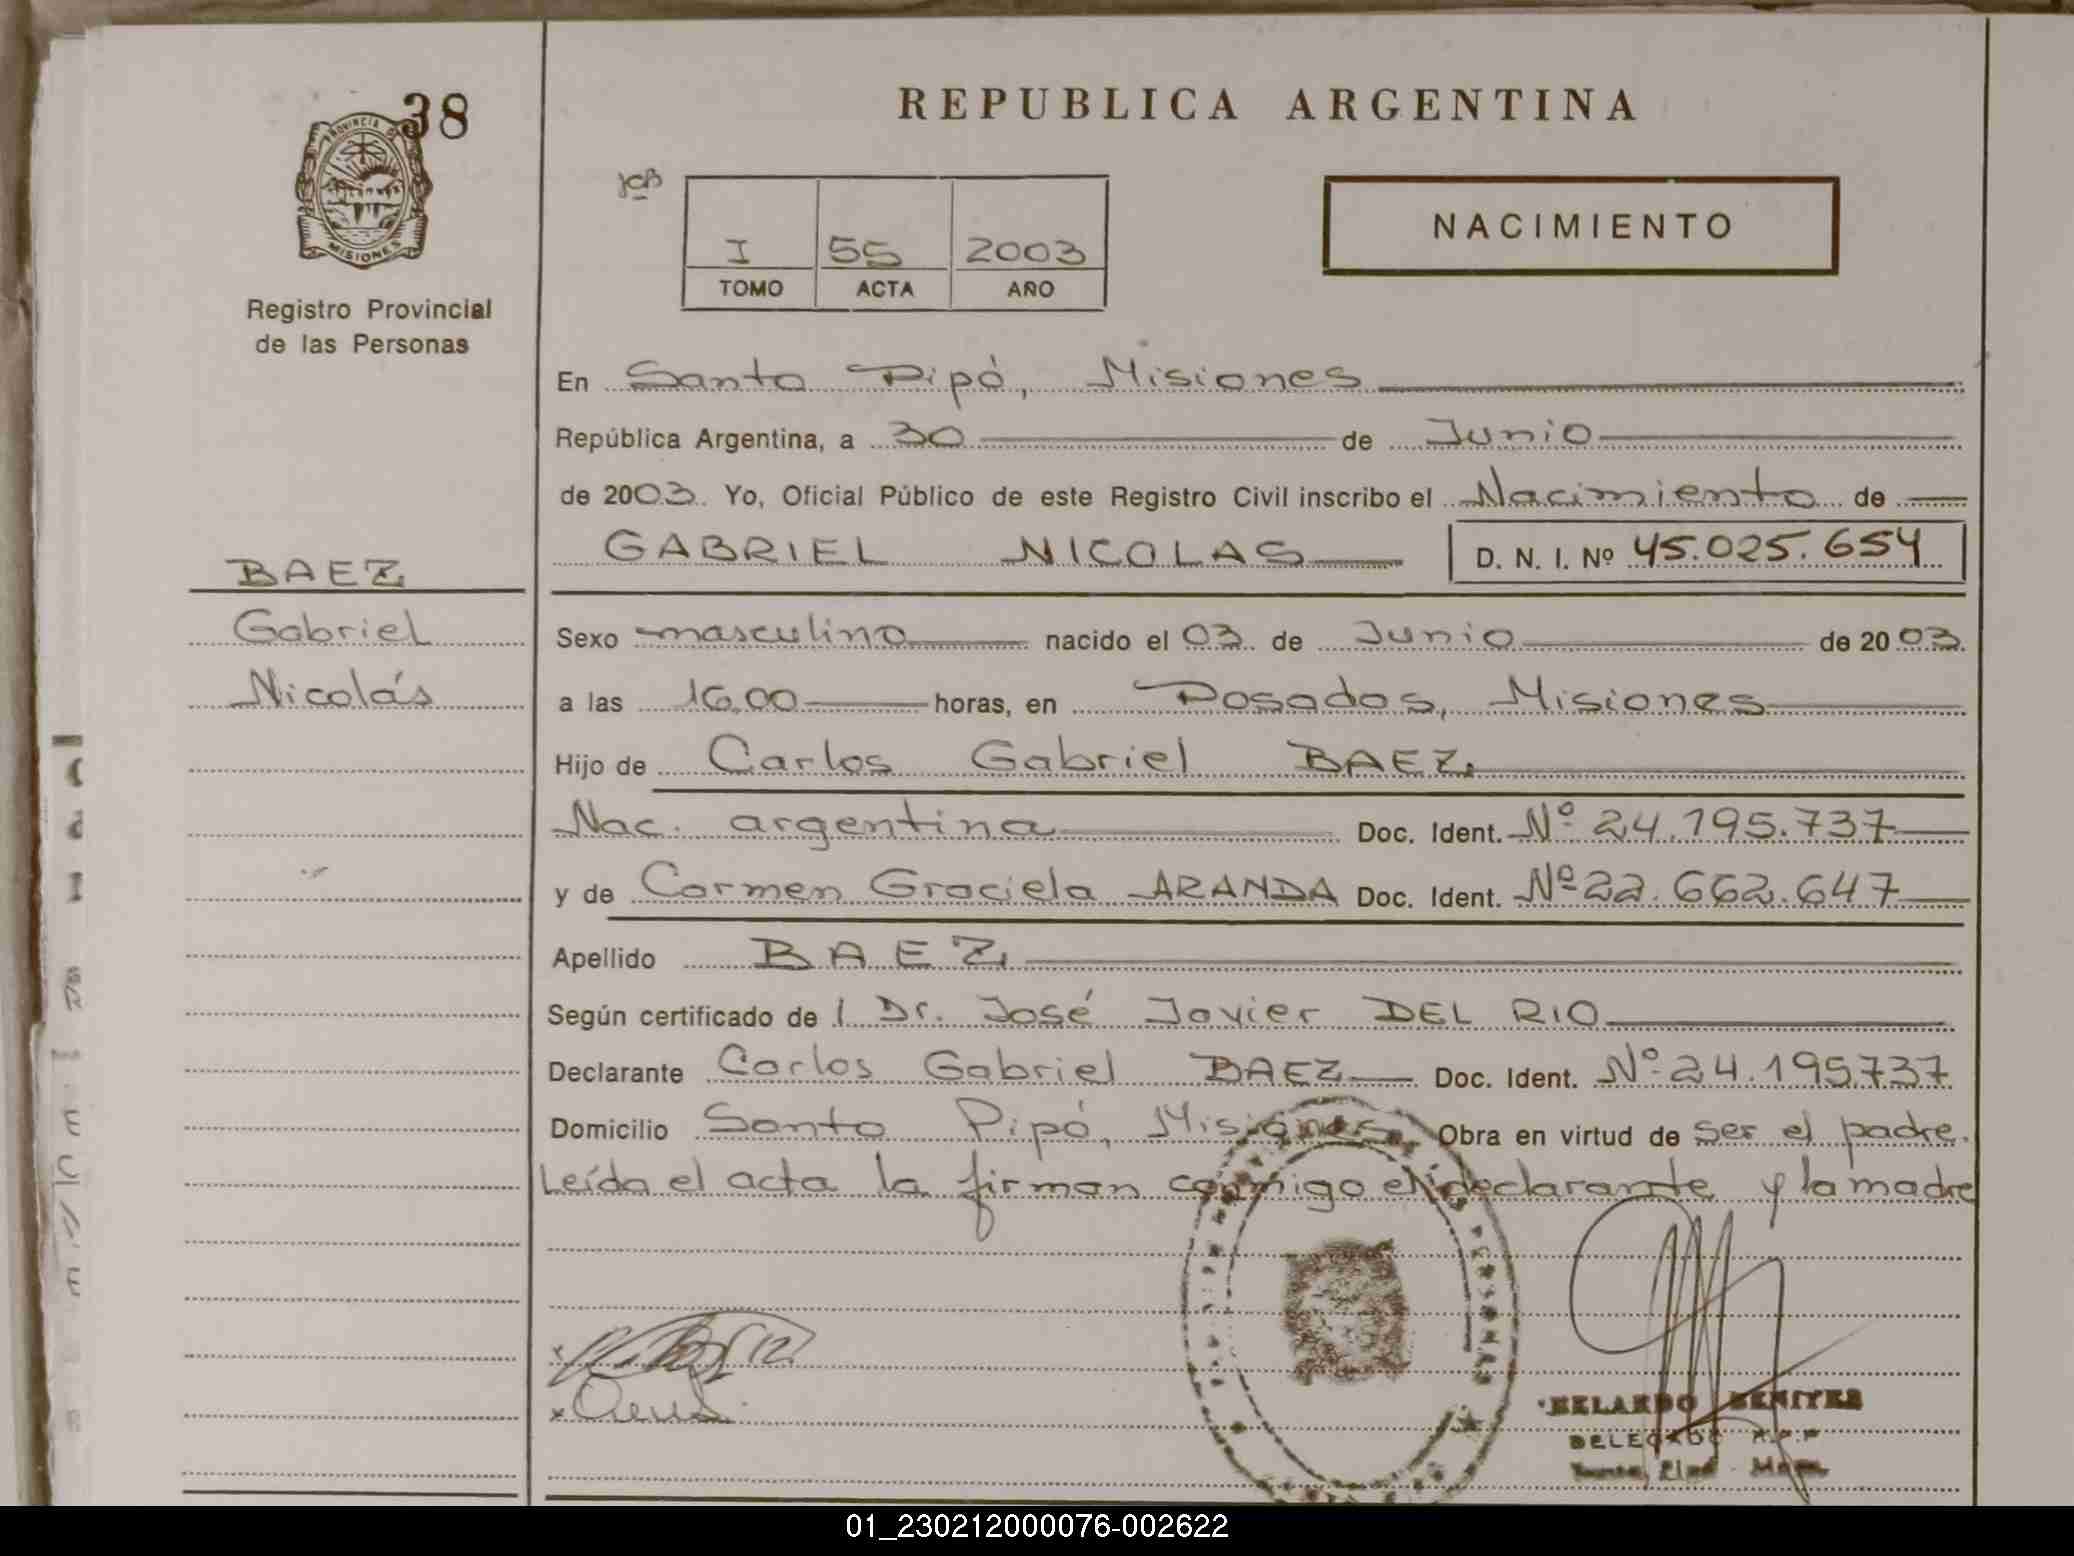 38
PROVINCIA DE
MISIONES
Registro Provincial
de las Personas
BAEZ
Gabriel
Nicolás
REPUBLICA ARGENTINA
JCB
I 55 2003
TOMO ACTA AÑO
NACIMIENTO
En Santo Pipó, Misiones
República Argentina, a 30 de Junio
de 2003. Yo, Oficial Público de este Registro Civil inscribo el Nacimiento de
GABRIEL NICOLAS D. N. I. Nº 45.025.654
Sexo masculino nacido el 03 de Junio de 2003.
a las 16,00 horas, en Posadas, Misiones
Hijo de Carlos Gabriel BAEZ
Nac. argentina Doc. Ident. Nº 24.195.737
y de Carmen Graciela ARANDA Doc. Ident. Nº 22.662.647
Apellido BAEZ
Según certificado de l Dr. José Javier DEL RIO
Declarante Carlos Gabriel BAEZ Doc. Ident. Nº 24.195.737
Domicilio Santo Pipó, Misiones Obra en virtud de ser el padre.
Leída el acta la firman conmigo el declarante y la madre
BENITES
DELEGADO R.P.P
01_230212000076-002622